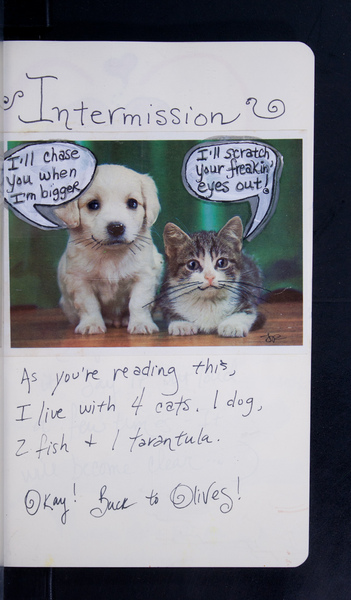 Intermission
I'll chase
you when
I'm bigger
I'll scratch
your freakin'
eyes out!
As you're reading this,
I live with 4 cats, 1 dog,
2 fish + 1 tarantula.
Okay! Back to Olives!